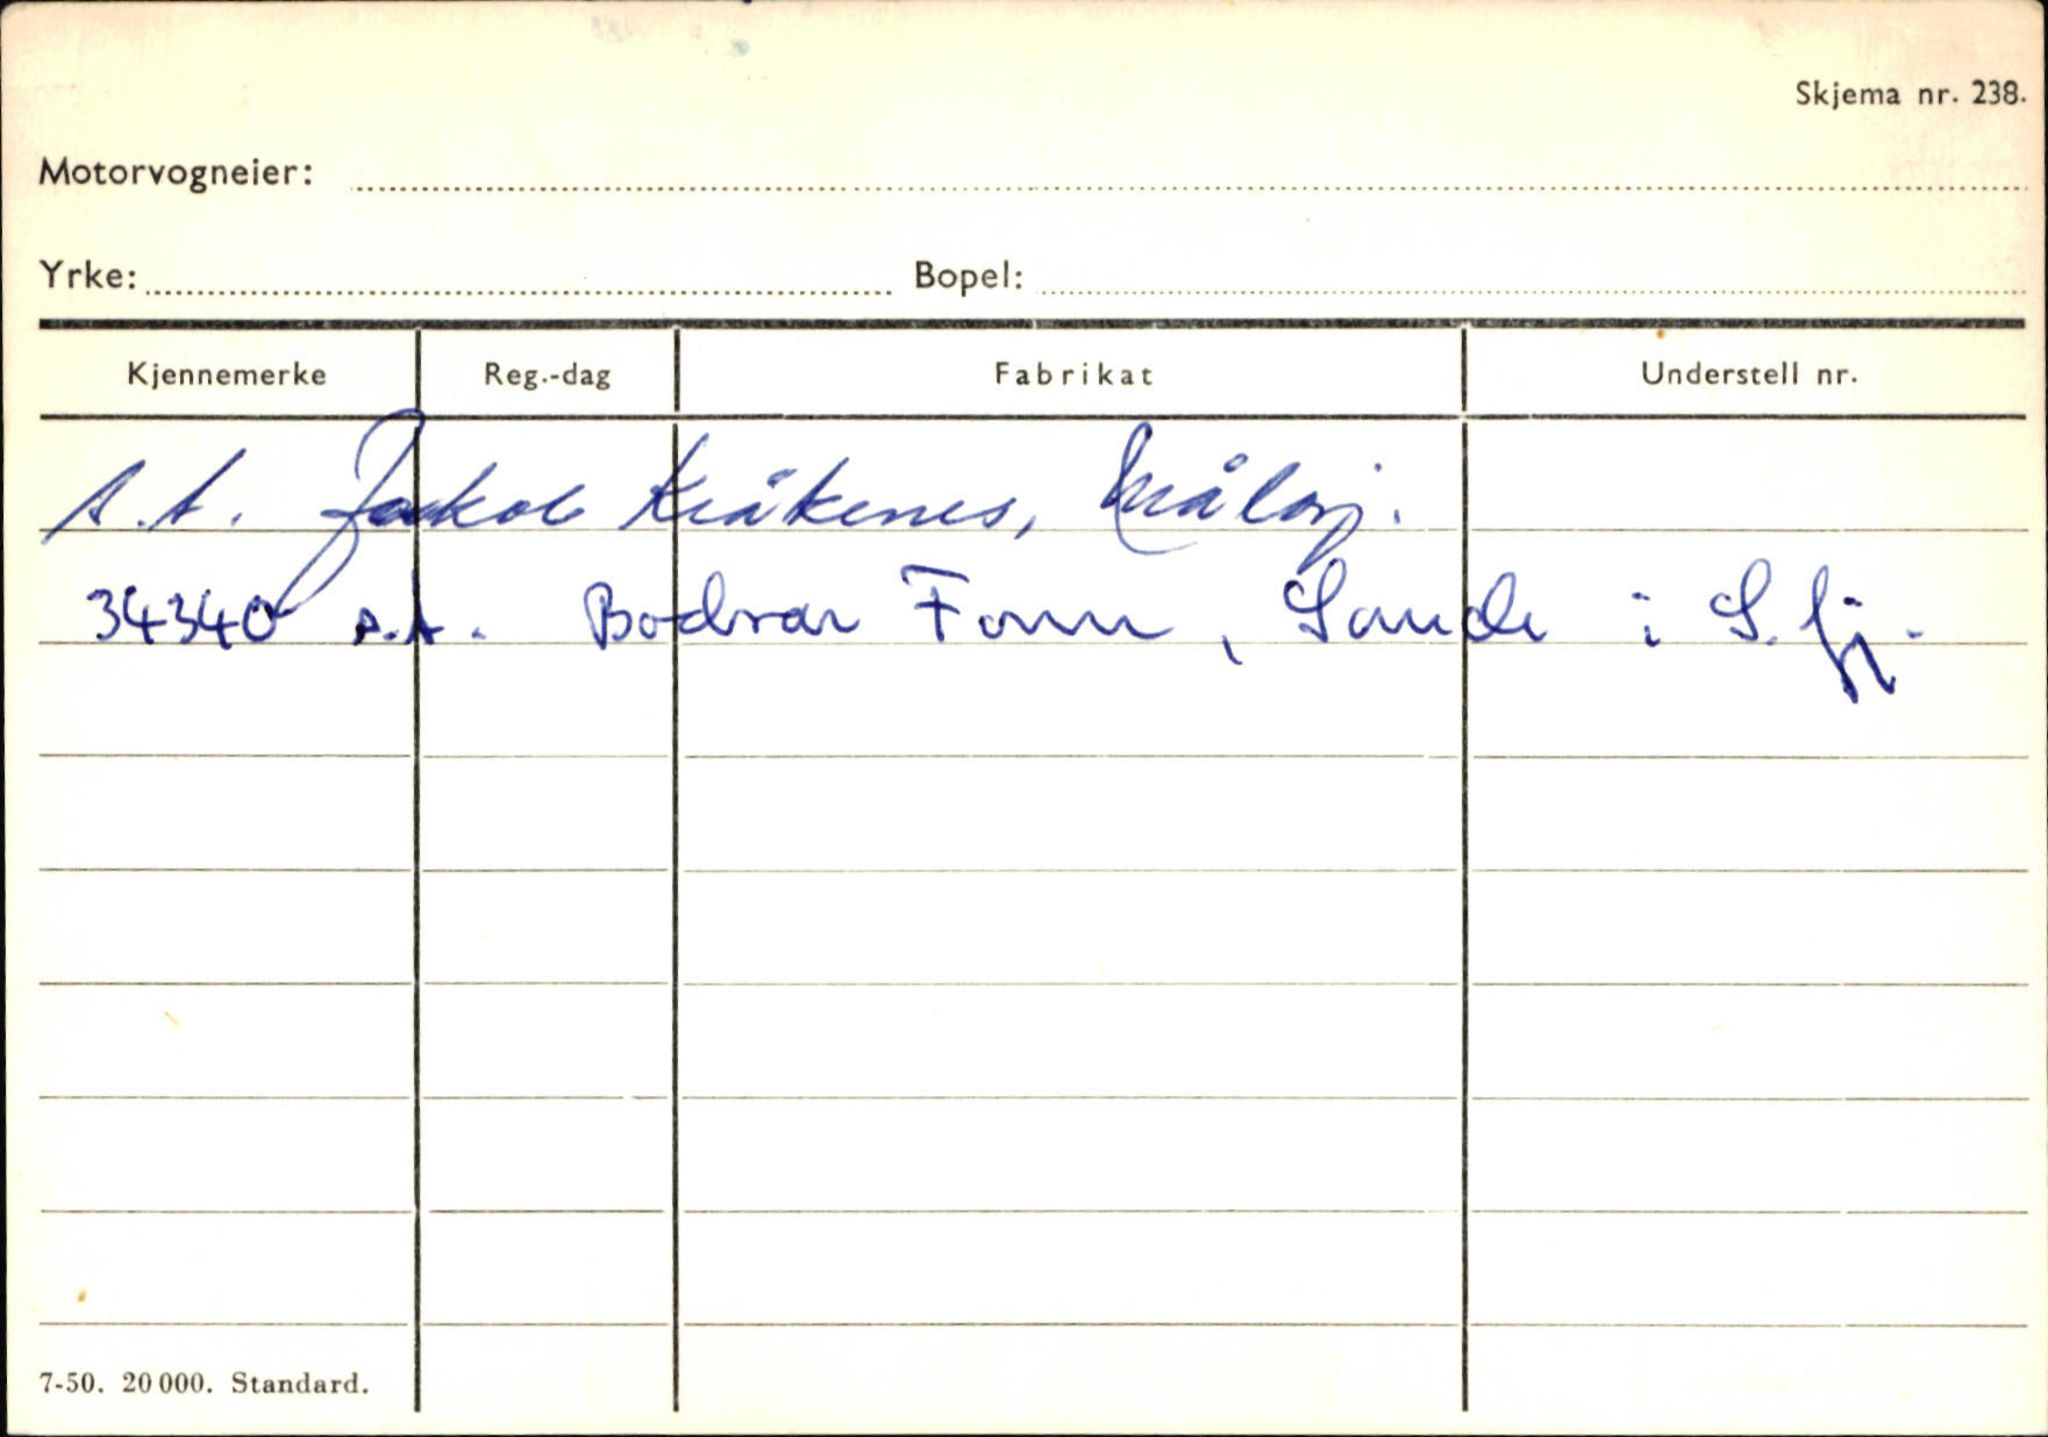 Skjema nr. 238.
Motorvogneier:
Yrke: Bopel:
Kjennemerke Reg.-dag Fabrikat Understell nr.
s.t. Jakob Kråkenes, Måløy.
34340 s.t. Bodvar Fonn, Sande i S.fj.
7-50. 20 000. Standard.